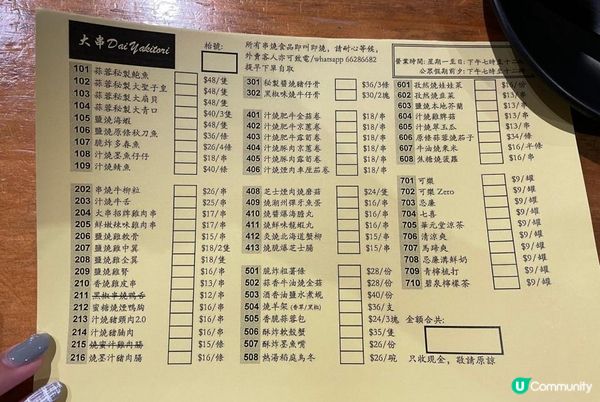 大串Dai Yakitori
枱號:
所有串燒食品即叫即燒，請耐心等候，
外賣客人亦可致電/whatsapp 66286682
提早下單自取
營業時間：星期一至日：下午七時至十二
公眾假期前夕：下午七時至十二
101 蒜蓉秘製鮑魚 $48/隻
102 蒜蓉秘製大聖子皇 $48/隻
103 蒜蓉秘製大扇貝 $48/隻
104 蒜蓉秘製大青口 $40/3隻
105 鹽燒海蝦 $48/隻
106 鹽燒原條秋刀魚 $36/條
107 脆炸多春魚 $26/4條
108 汁燒墨魚仔仔 $18/串
109 汁燒鯖魚 $40/條
202 串燒牛柳粒 $26/串
203 汁燒牛舌 $25/串
204 大串招牌雞肉串 $17/串
205 鮮嫩辣味雞肉串 $17/串
206 鹽燒雞軟骨 $15/串
207 鹽燒雞中翼 $18/2隻
208 鹽燒雞全翼 $18/隻
209 鹽燒雞腎 $16/串
210 香燒雞皮串 $13/串
211 黑椒串燒鴨舌 $/串
212 蜜糖燒煙鴨胸 $16/串
213 汁燒豬頸肉2.0 $16/串
214 汁燒豬腩肉 $16/串
215 燒蜜汁雞肉腸 $15/條
216 燒墨汁豬肉腸 $16/條
301 秘製醬燒豬仔骨 $36/3條
302 黑椒味燒牛仔骨 $30/2塊
401 汁燒肥牛金菇卷 $18/串
402 汁燒肥牛京蔥卷 $18/串
403 汁燒肥牛露筍卷 $18/串
404 汁燒豚肉京蔥卷 $18/串
405 汁燒豚肉露筍卷 $18/串
406 汁燒煙肉車厘茄卷 $18/串
408 芝士煙肉燒蘑菇 $24/串
409 燒潮州彈牙魚蛋 $16/串
410 燒醬爆海膽丸 $16/串
411 燒鮮味龍蝦丸 $16/串
412 炙燒北海道蟹柳 $15/串
413 燒脆爆芝士腸 $15/串
501 脆炸粗薯條 $28/份
502 蒜香牛油燒金菇 $28/份
503 酒香油鹽水煮蜆 $40/份
504 燒羊架(香草/黑椒) $36/支
505 香脆蒜蓉包 $24/3塊
506 酥炸軟殼蟹 $35/隻
507 酥炸墨魚嘴 $28/份
508 熱湯稻庭烏冬 $26/碗
601 孜然燒娃娃菜 $16/份
602 孜然燒韭菜 $13/串
603 鹽燒本地芥蘭 $13/串
604 汁燒雞髀菇 $13/串
605 汁燒翠玉瓜 $13/串
606 原條蒜蓉燒茄子 $34/條
607 牛油燒粟米 $16/半條
608 焦糖燒菠蘿 $13/串
701 可樂 $9/罐
702 可樂 Zero $9/罐
703 忌廉 $9/罐
704 七喜 $9/罐
705 華元堂涼茶 $9/罐
706 清涼爽 $9/罐
707 馬蹄爽 $9/罐
708 忌廉溝鮮奶 $9/罐
709 青檸梳打 $9/罐
710 碧泉檸檬茶 $9/罐
金額合共：
只收現金，敬請原諒
U Community